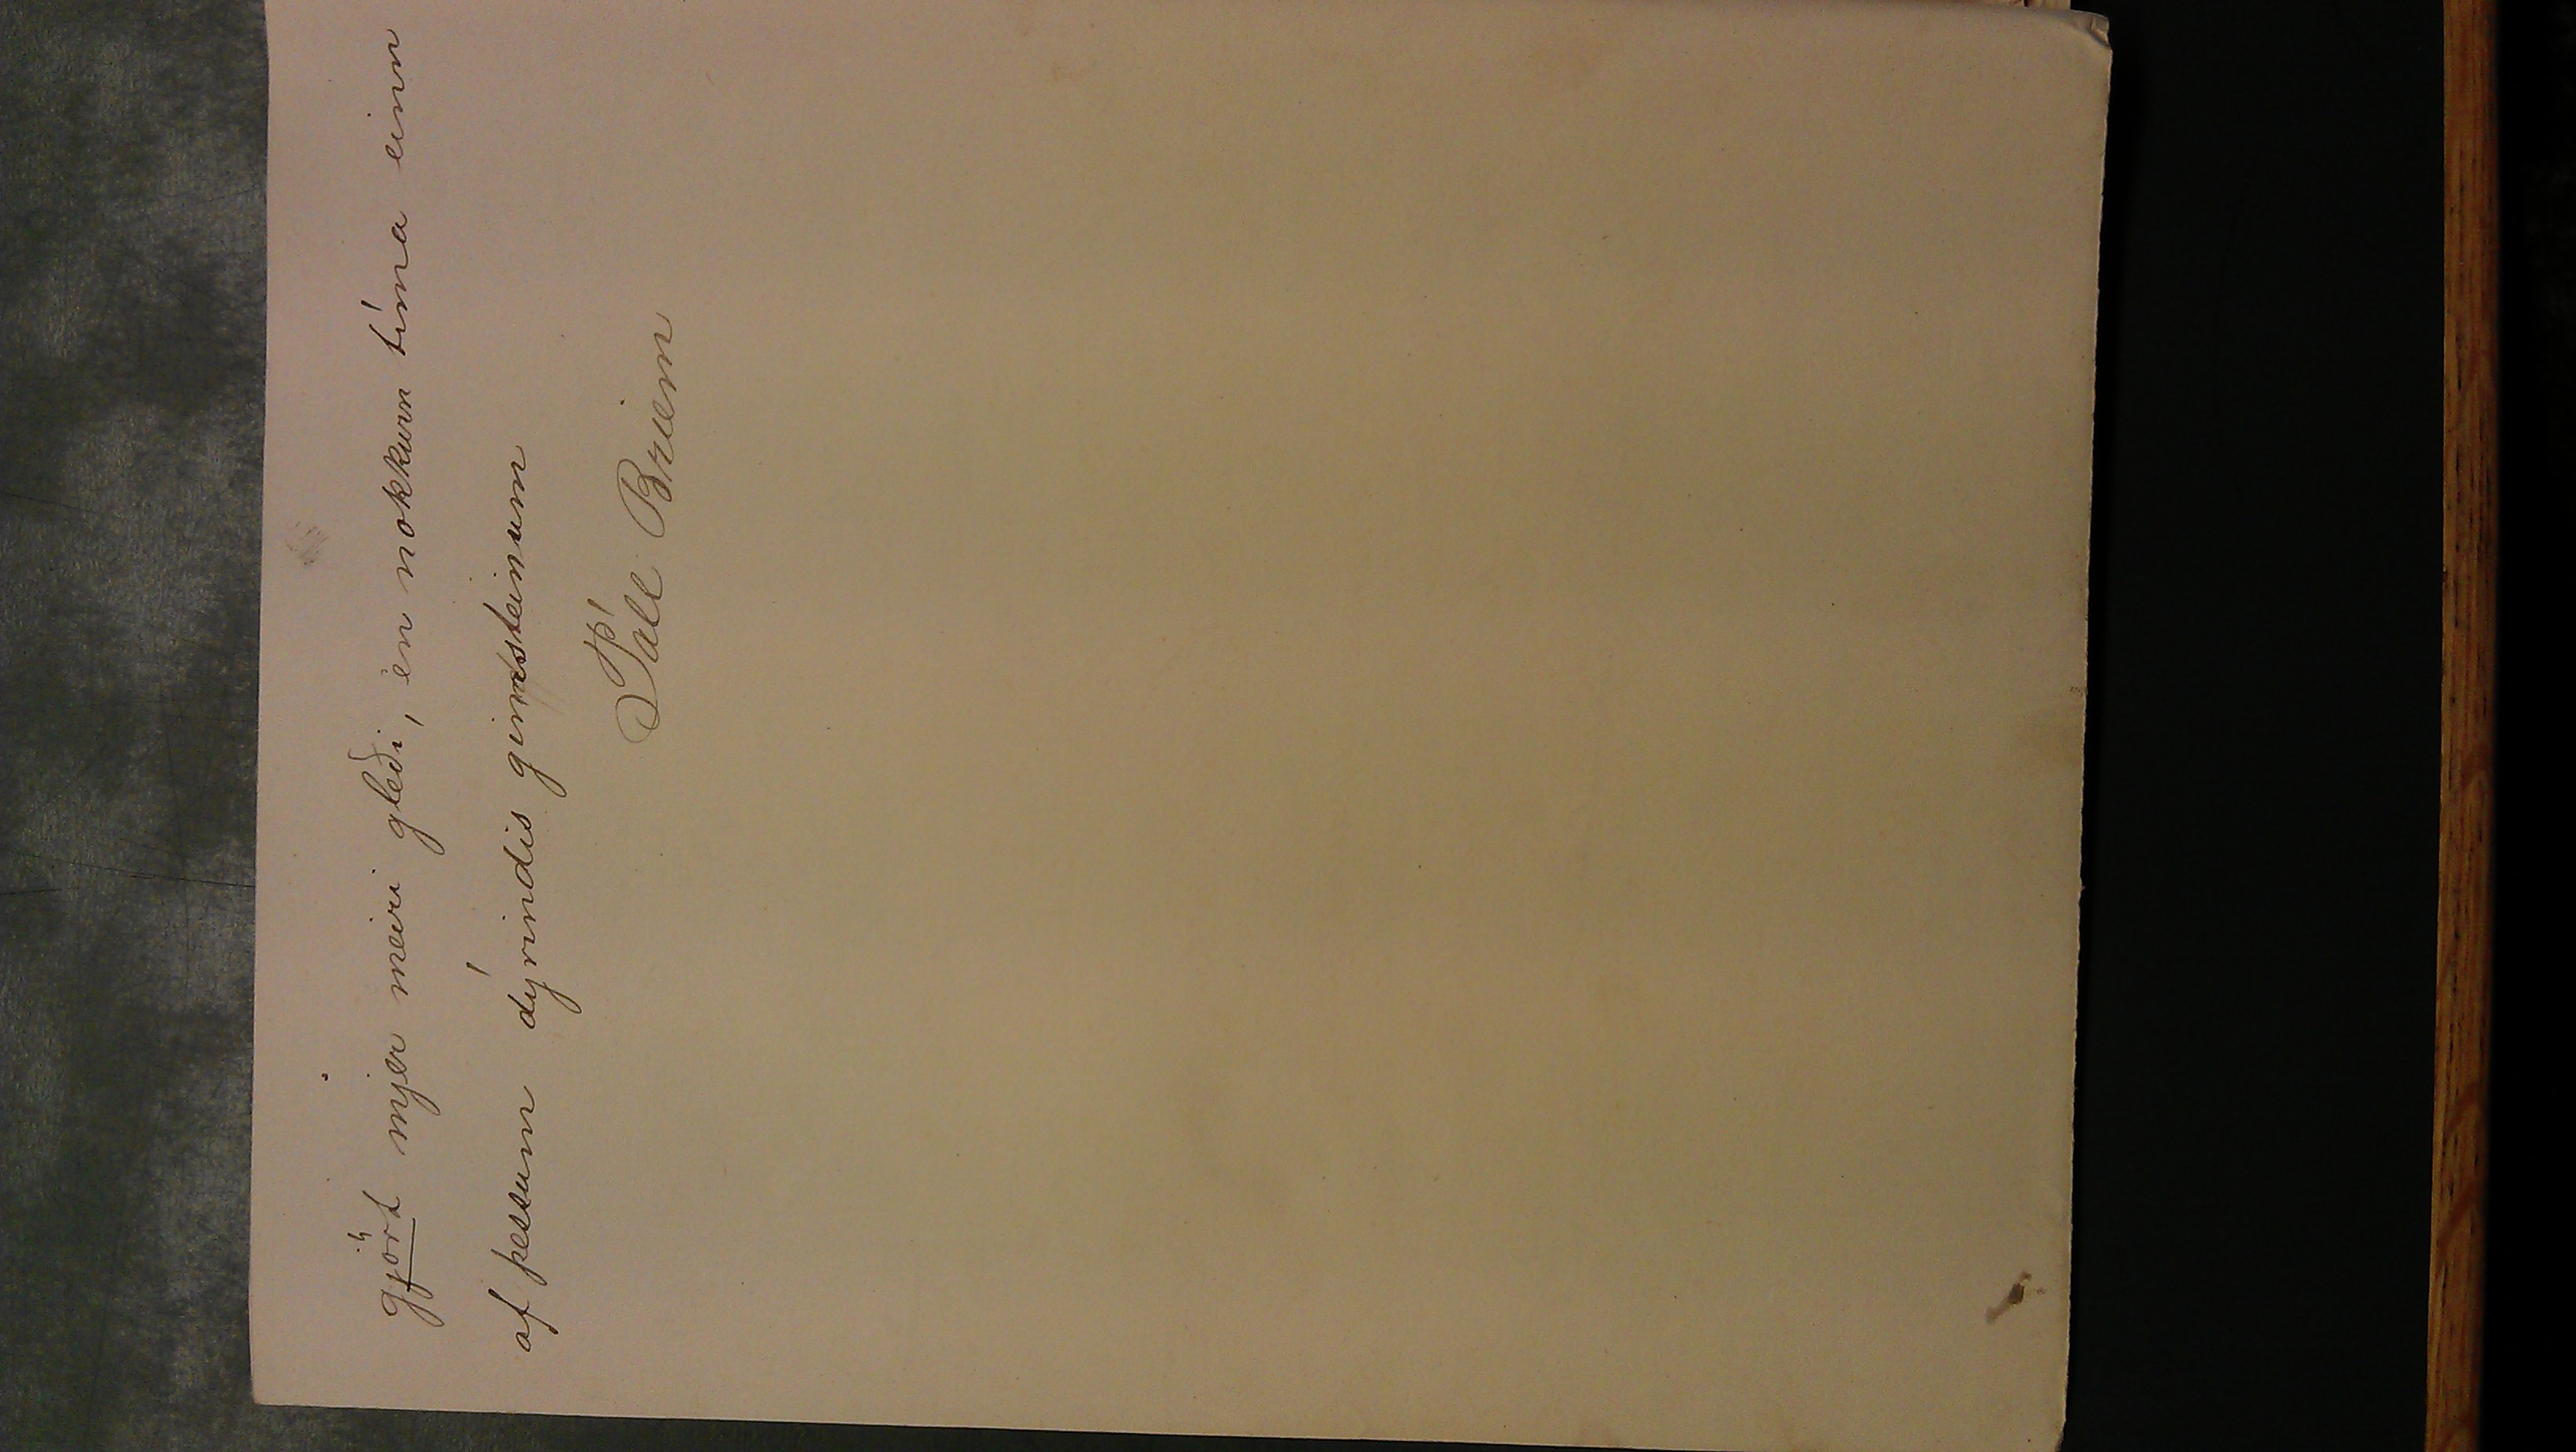 gjört mjer meiri gleði, en nokkurn tíma einn
af þessum dýrindis gimsteinum
Páll Briem